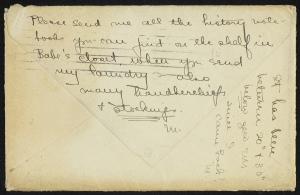 Please send me all the history note-
book you can find on the shelf in
Babe's closet when you send
my laundry - also
many handkerchiefs
& stockings.
M.
It has been
between 20° & 30°
below zero
since I
came back.
M